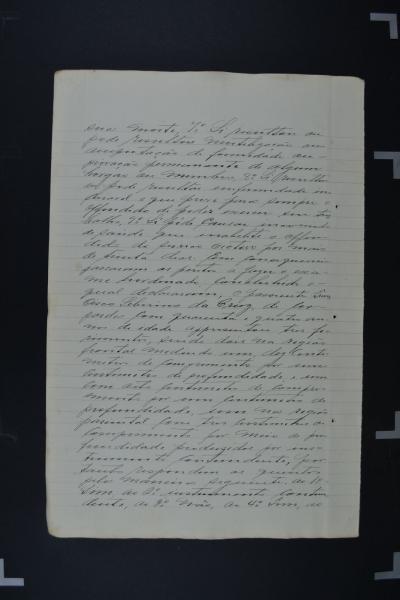 sua morte, 7º Si resultou ou
pode resultar mutilação ou
amputação, deformidade ou
privação permanente de algum
orgão ou membro, 8º Si resultou
ou pode resultar enfermidade in
curavel e que prive para sempre o
offendido de poder exercer seu tra
balho, 9º Si pode causar incommodo
de saude que inhabilite o offen
dido do serviço activo por mais
de trinta dias. Em consequencia
passaram os peritos a fazer o exa
me
geral declararam, o paciente
da Cruz, de cor
parda, com quarenta e quatro an
nos de idade apresentou tres fe
rimentos, sendo dois na região
frontal medindo um dois centi
metros de comprimento por um
centimetro de profundidade, e um
com oito centimetros de compri
mento por um centimetro de
profundidade, um na região
parietal com tres centimetros de
comprimento por meio de pro
fundidade produzidos por ins
trumento contundente, por
tanto respondem os quesitos
pela maneira seguinte: ao 1º
Sim, ao 2º instrumento contun
dente, ao 3º Não, ao 4º Sim, ao